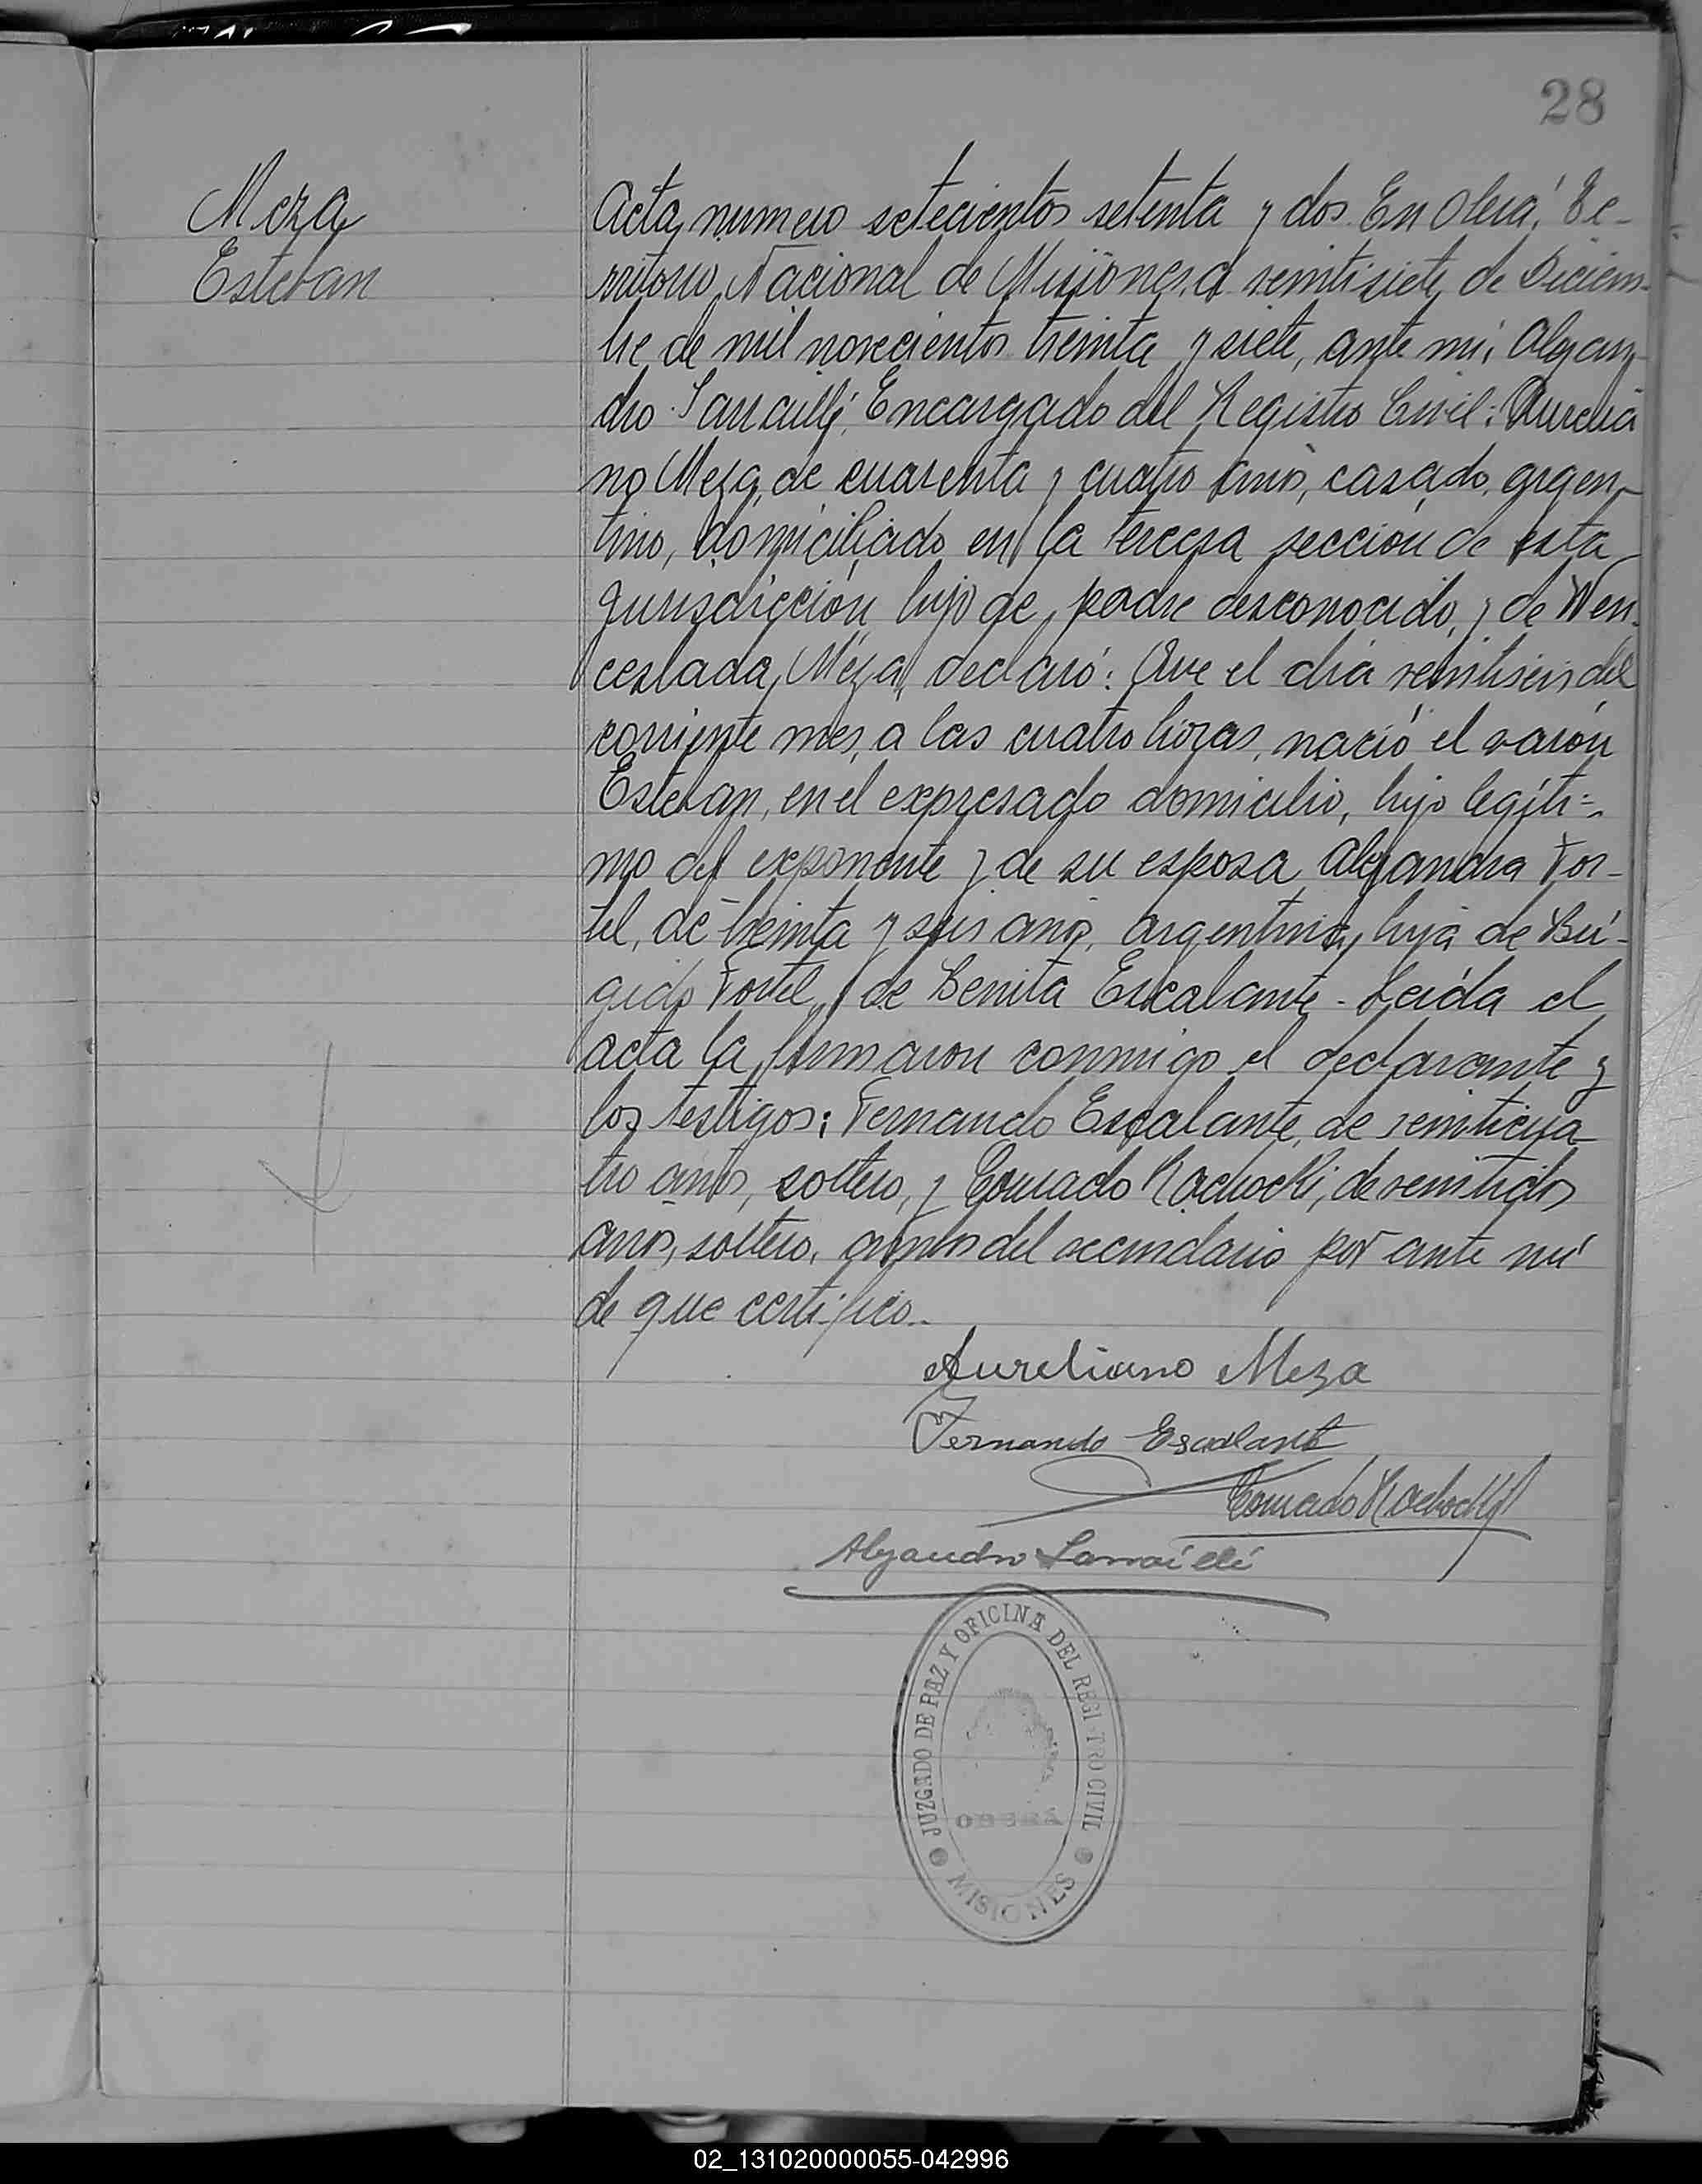 28
Meza
Esteban
Acta numero setecientos setenta y dos. En Oberá, Te-
rritorio Nacional de Misiones, a veintisiete de Diciem-
bre de mil novecientos treinta y siete, ante mi, Alejan-
dro Sarraillé, Encargado del Registro Civil: Aurelia
no Meza, de cuarenta y cuatro años, casado, argen-
tino, domiciliado en la tercera sección de esta
jurisdicción, hijo de padre desconocido, y de Wen-
ceslada Méza, declaró: Que el día veintiseis del
corriente mes, a las cuatro horas, nació el varón
Esteban, en el expresado domicilio, hijo legíti-
mo del exponente y de su esposa Alejandra For-
tel, de treinta y seis años, argentina, hija de Brí-
gido Fortel y de Benita Escalante - Leída el
acta la firmaron conmigo el declarante y
los testigos: Fernando Escalante, de veinticua
tro años, soltero, y Conrado Rachocki, de veintidos
años, soltero, ambos del vecindario por ante mí
de que certifico.-
Aureliano Meza
Fernando Escalante
Conrado Rachocki
Alejandro Sarraillé
JUZGADO DE PAZ Y OFICINA DEL REGI TRO CIVIL
OBERÁ
MISIONES
02_131020000055-042996